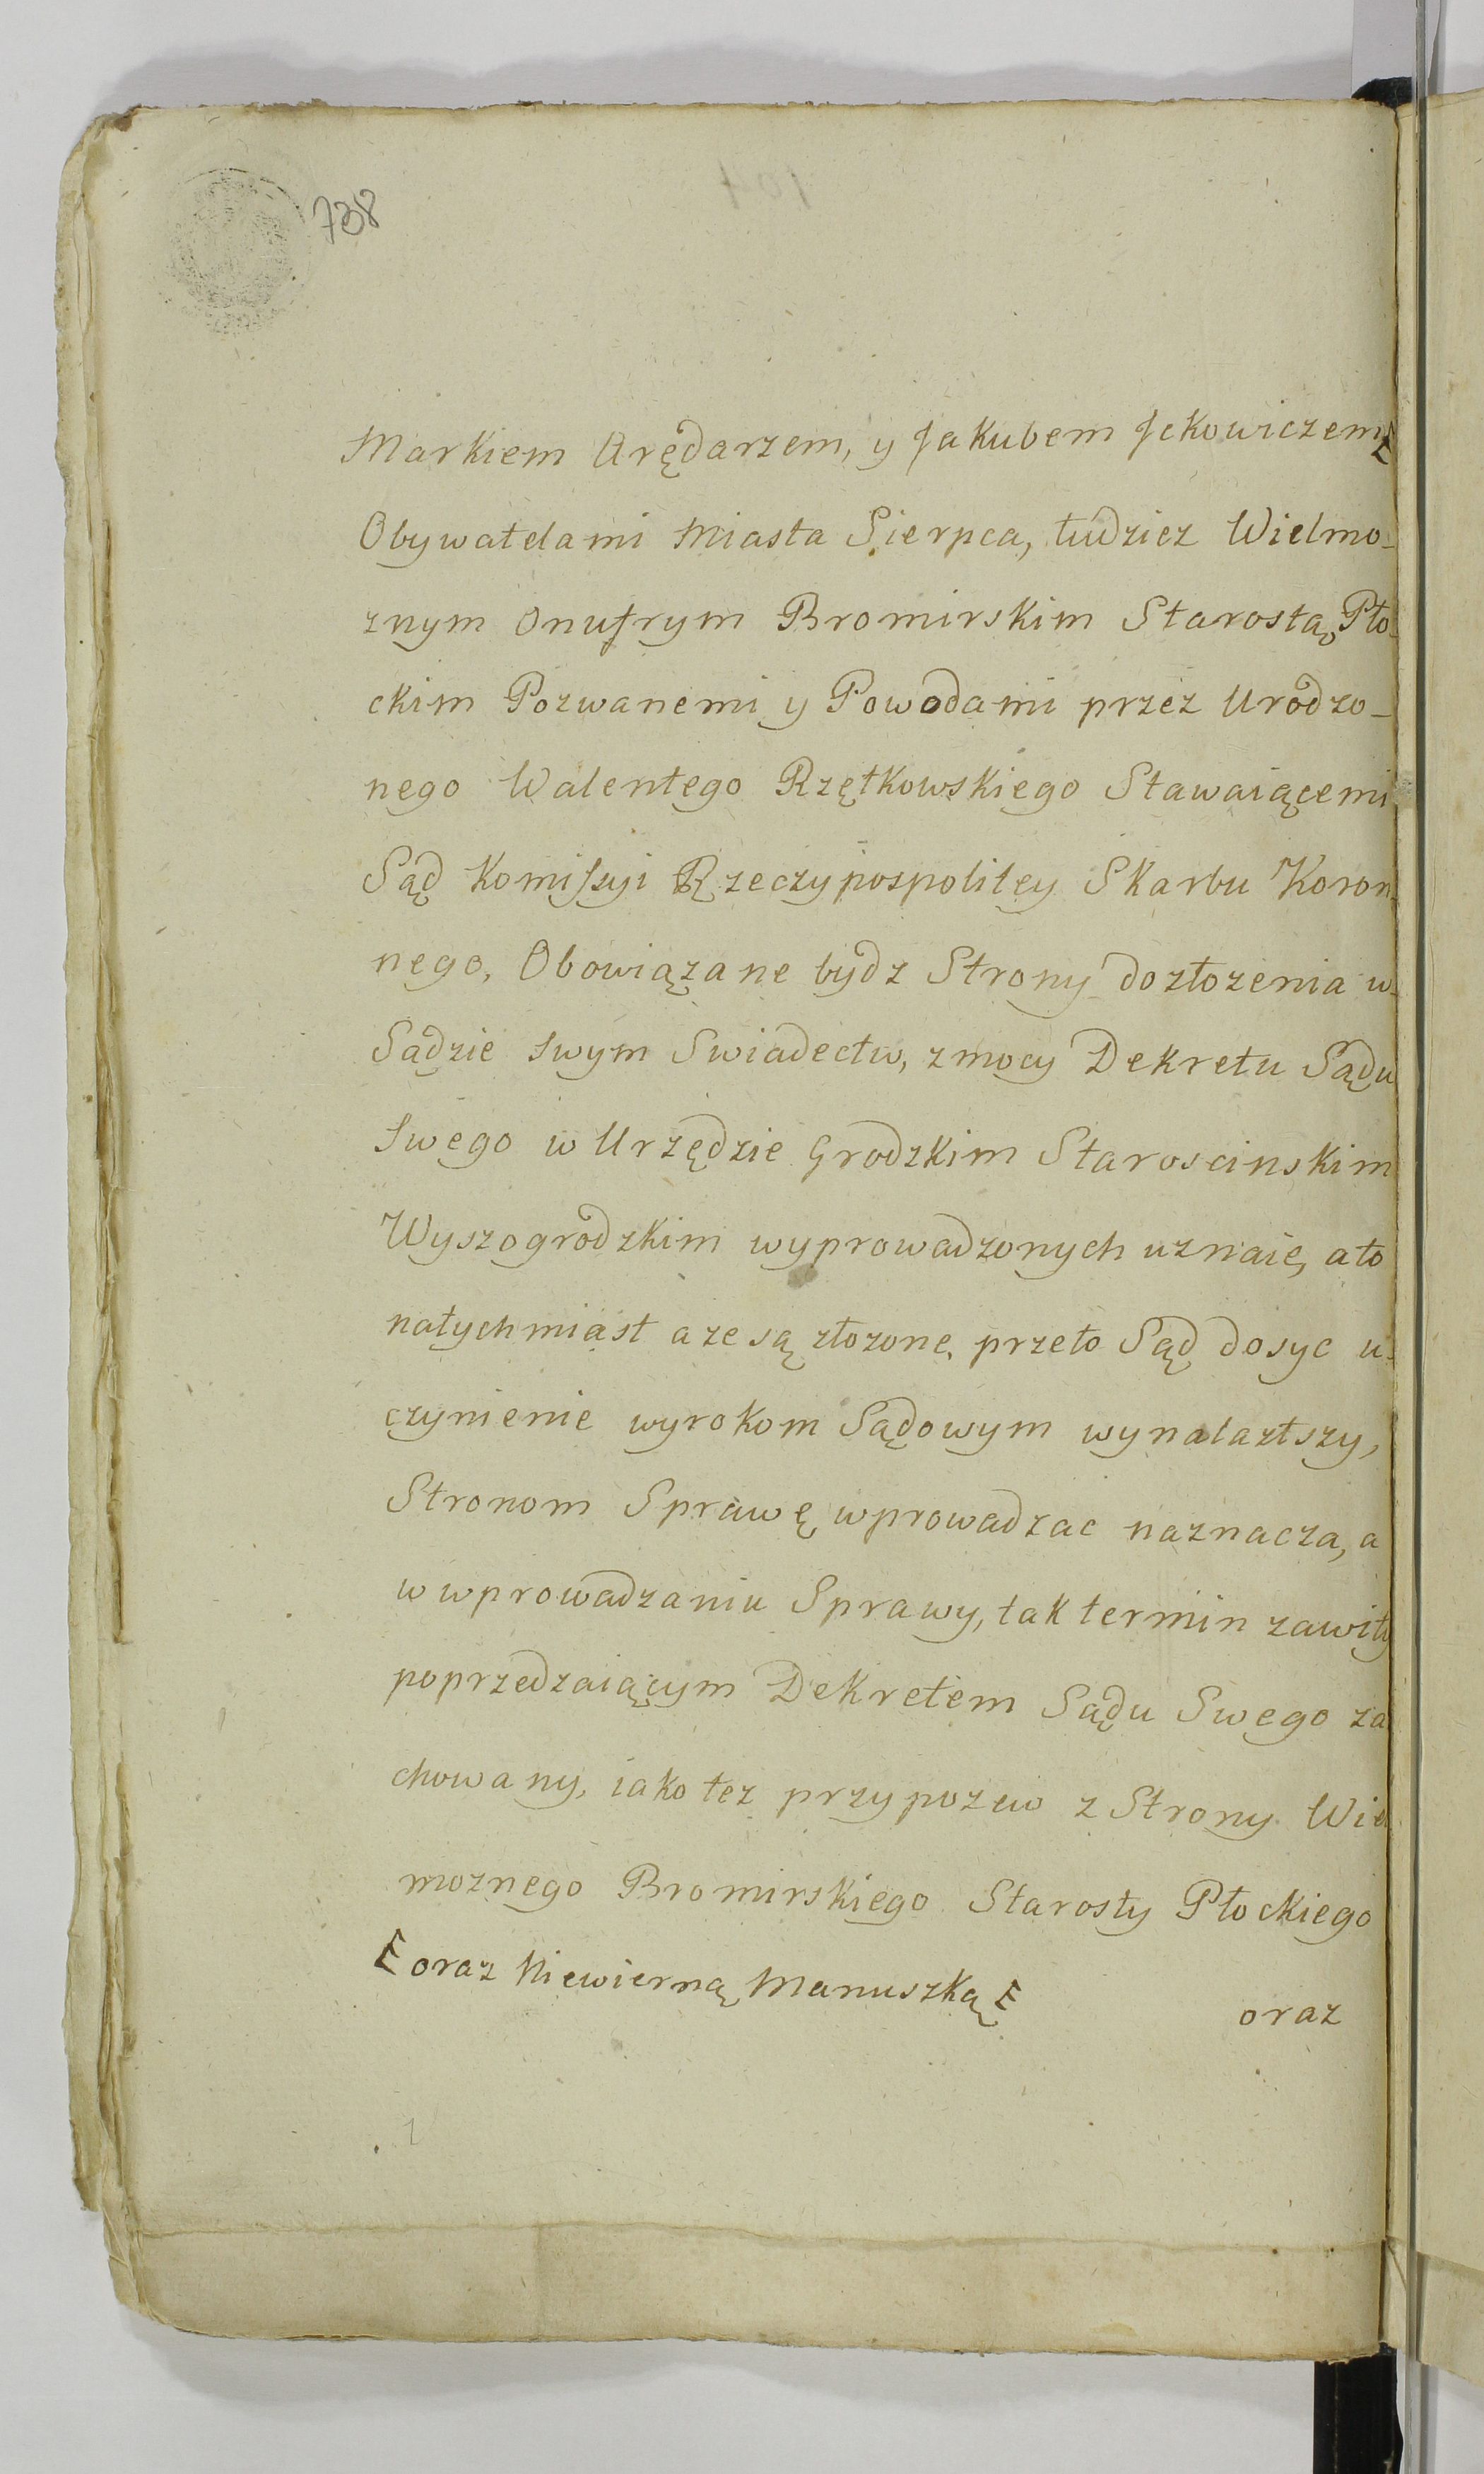 738
Markiem Arędarzem, y Jakubem Jckowiczem E
Obywatelami Miasta Sierpca, tudziez Wielmo-
znym Onufrym Bromirskim Starostą Pło-
ckim Pozwanemi y Powodami przez Urodzo-
nego Walentego Rzętkowskiego Stawaiącemi
Sąd Komissyi Rzeczypospolitey Skarbu Koron
nego, Obowiązane bydz Strony do złozenia w-
Sądzie swym Swiadectw, z mocy Dekretu Sądu
swego w Urzędzie Grodzkim Staroscinskim
Wyszogrodzkim wyprowadzonych uznaie, a to
natychmiast a ze są złozone, przeto Sąd dosyc u-
czynienie wyrokom Sądowym wynalazłszy,
Stronom Sprawę wprowadzac naznacza, a
w wprowadzaniu Sprawy, tak termin zawity
poprzedzaiącym Dekretem Sądu Swego za
chowany, iako tez przypozew z Strony Wiel
moznego Bromirskiego Starosty Płockiego
E oraz Niewierną Manuszką E
oraz